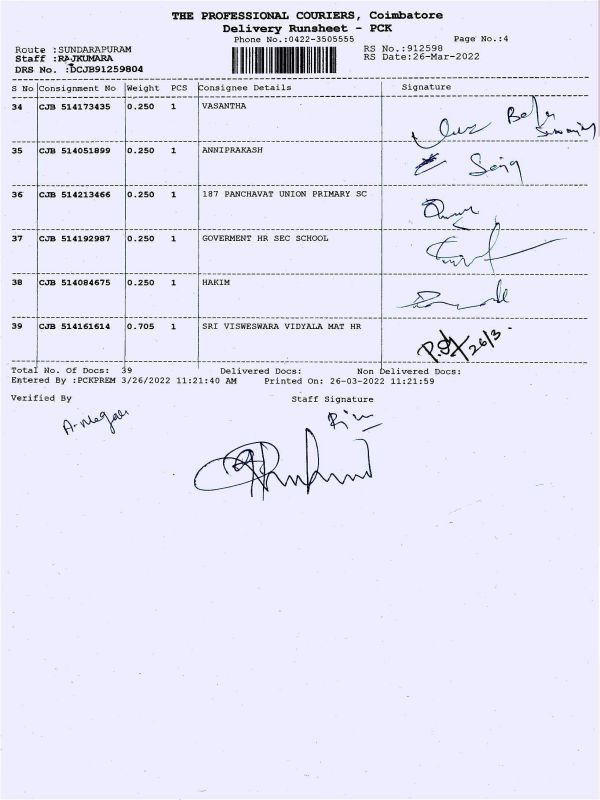 THE PROFESSIONAL COURIERS, Coimbatore
Delivery Runsheet - PCK
Phone No.:0422-3505555 Page No.:4
Route :SUNDARAPURAM RS No.:912598
Staff :RAJKUMARA RS Date:26-Mar-2022
DRS No. :DCJB91259804
S No Consignment No Weight PCS Consignee Details Signature
34 CJB 514173435 0.250 1 VASANTHA
35 CJB 514051899 0.250 1 ANNIPRAKASH
36 CJB 514213466 0.250 1 187 PANCHAVAT UNION PRIMARY SC
37 CJB 514192987 0.250 1 GOVERMENT HR SEC SCHOOL
38 CJB 514084675 0.250 1 HAKIM
39 CJB 514161614 0.705 1 SRI VISWESWARA VIDYALA MAT HR
26/3
Total No. Of Docs: 39 Delivered Docs: Non Delivered Docs:
Entered By :PCKPREM 3/26/2022 11:21:40 AM Printed On: 26-03-2022 11:21:59
Verified By Staff Signature